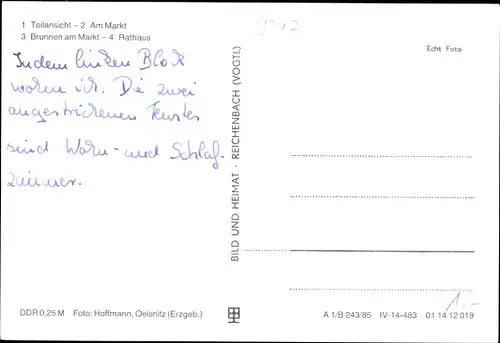 1 Teilansicht – 2 Am Markt
3 Brunnen am Markt – 4 Rathaus
In dem linken Block
wohne ich. Die zwei
angestrichenen Fenster
sind Wohn- und Schlaf-
zimmer.
DDR 0,25 M Foto: Hoffmann, Oelsnitz (Erzgeb.)
BILD UND HEIMAT · REICHENBACH (VOGTL)
Echt Foto
A 1/B 243/85 IV-14-483 01 14 12 019
1.-